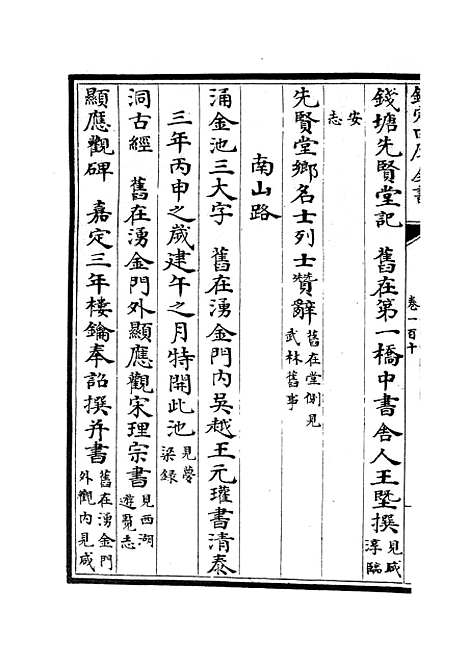 欽定四庫全書
卷一百十
錢塘先賢堂記　舊在第一橋中書舍人王塈撰見咸淳臨
安志
先賢堂鄉名士列士贊辭舊在堂側見武林舊事
南山路
涌金池三大字　舊在湧金門內吳越王元瓘書清泰
三年丙申之歲建午之月特開此池見夢梁錄
洞古經　舊在湧金門外顯應觀宋理宗書見西湖遊覽志
顯應觀碑　嘉定三年樓鑰奉詔撰并書舊在湧金門外觀內見咸